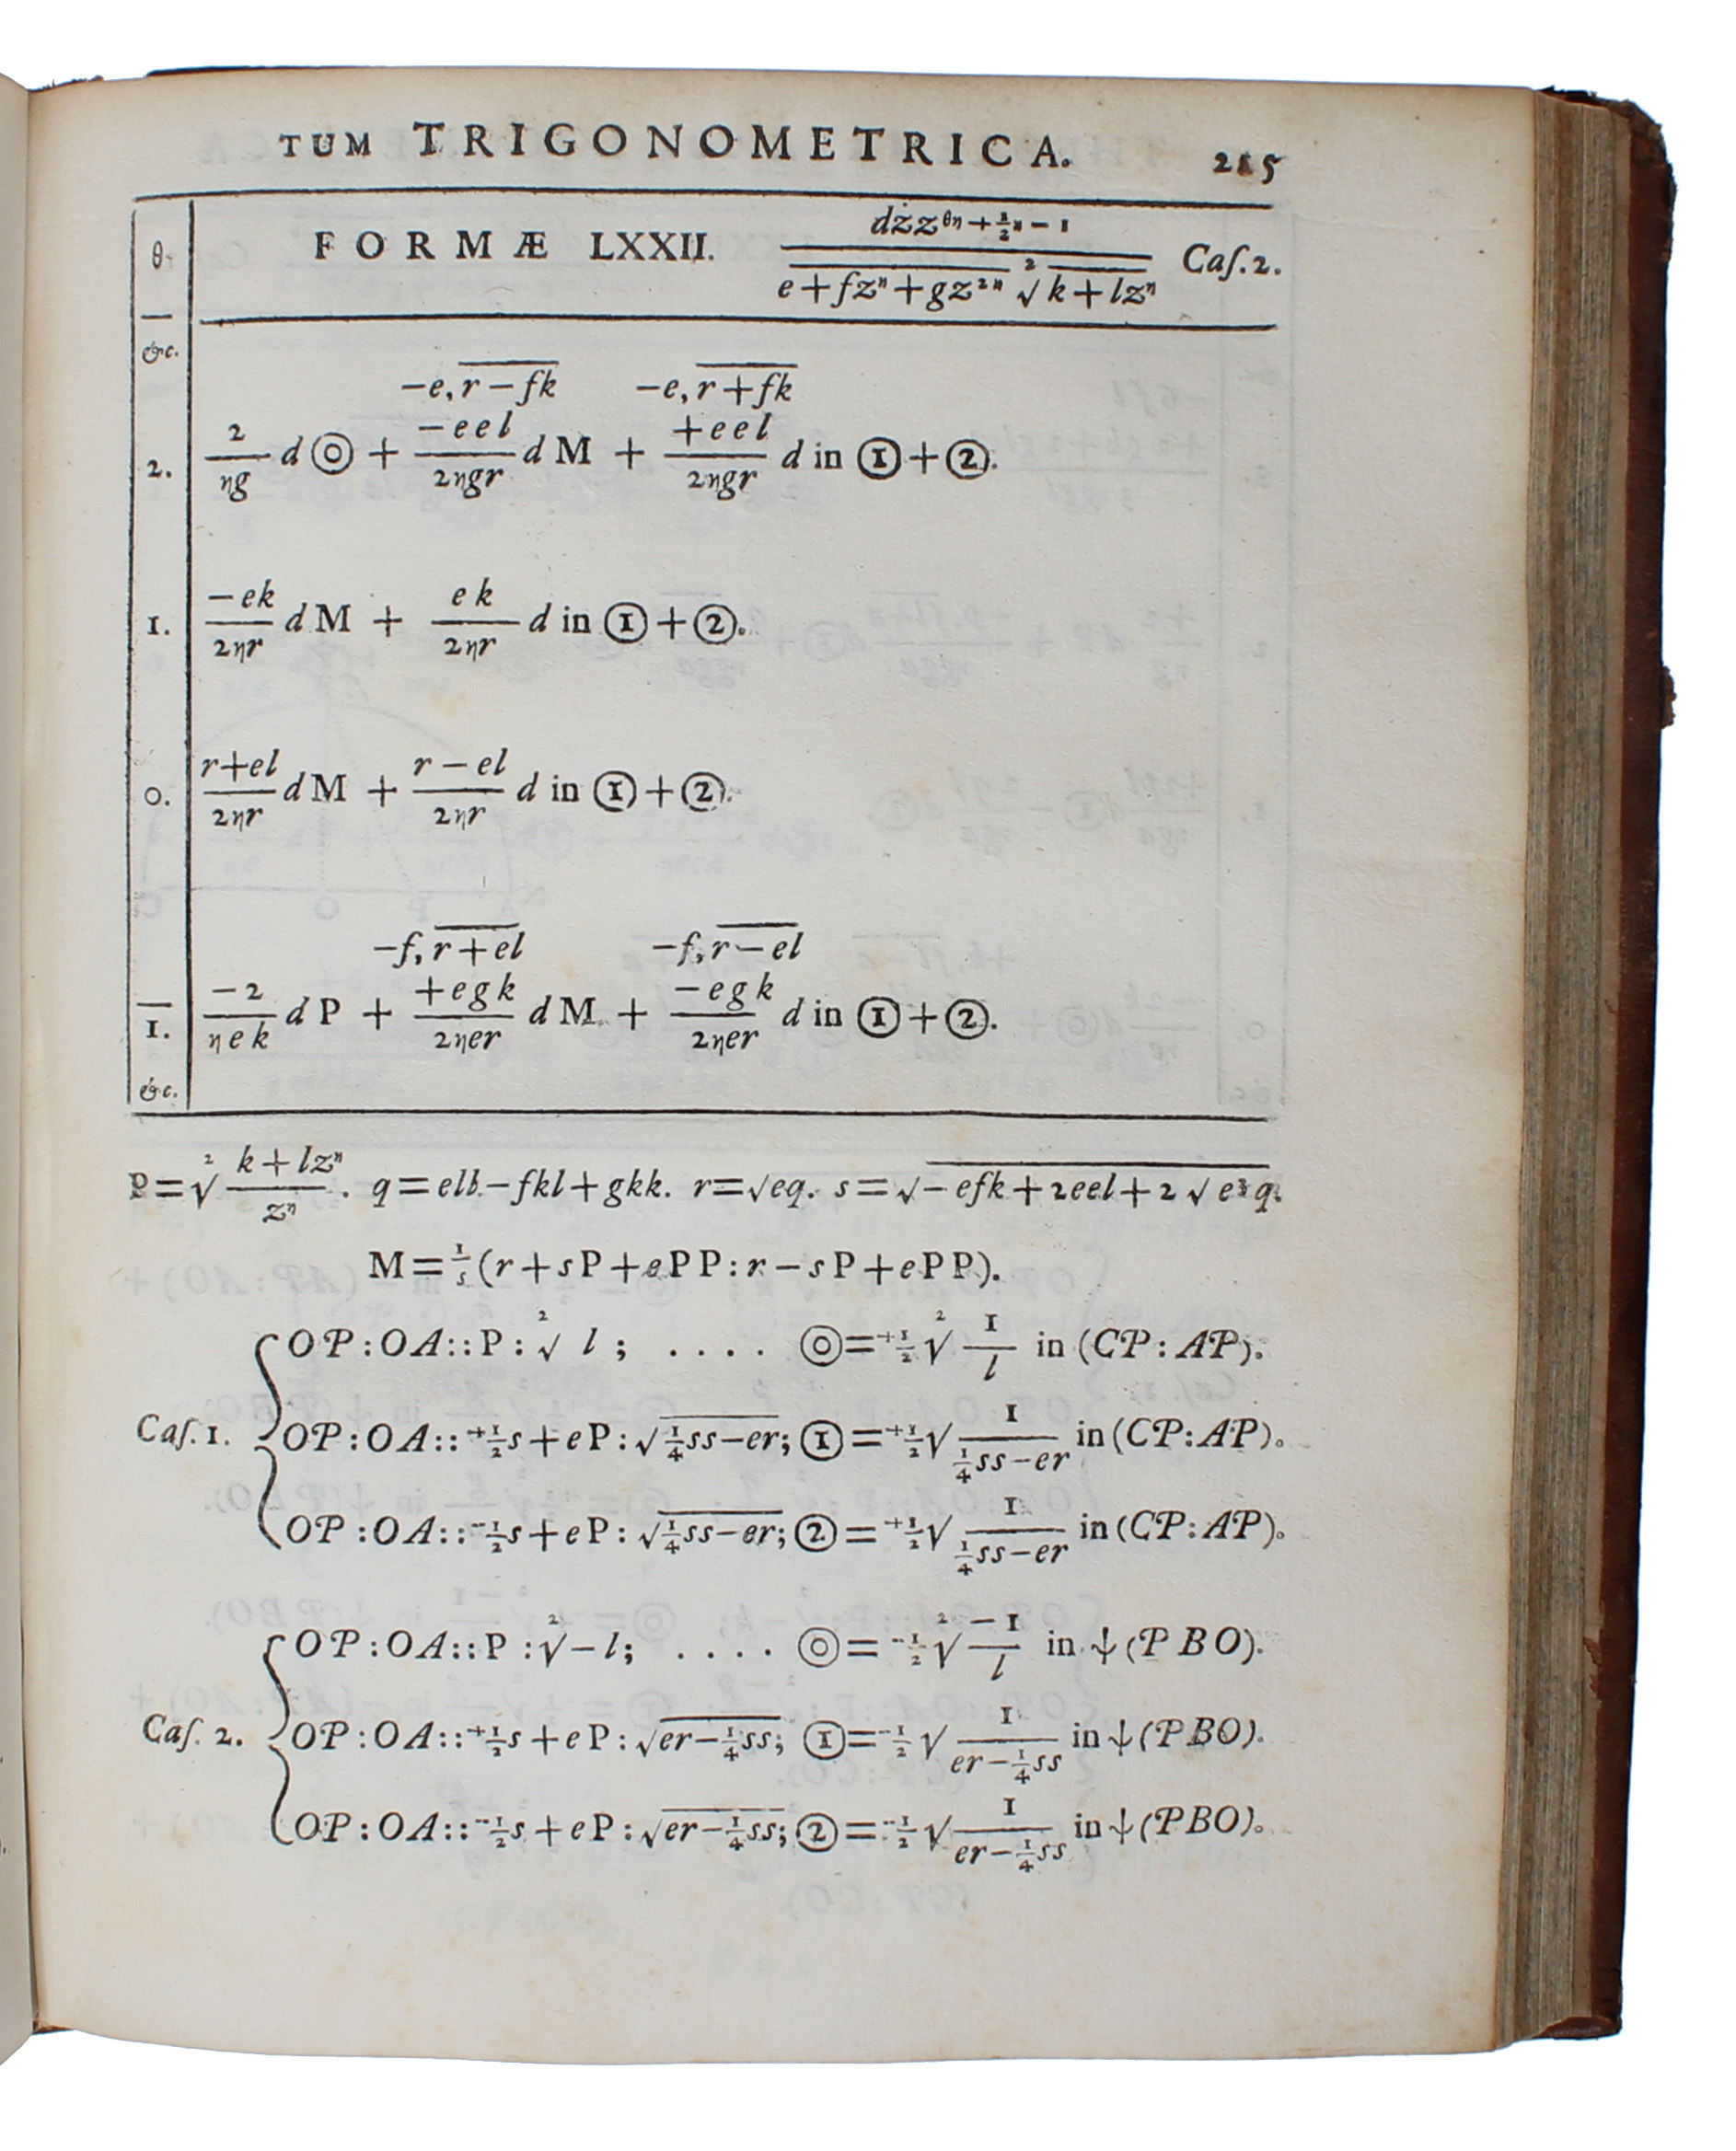 TUM TRIGONOMETRICA. 215
θ. FORMÆ LXXII. dżz^{θη+½η−1} / e+fz^η+gz^{2η} ²√k+lz^η Caſ.2.
&c.
−e,r−fk −e,r+fk
2. 2/ηg d ⊚ + −eel/2ηgr dM + +eel/2ηgr d in ①+②.
1. −ek/2ηr dM + ek/2ηr d in ①+②.
0. r+el/2ηr dM + r−el/2ηr d in ①+②.
−f,r+el −f,r−el
−1. −2/ηek dP + +egk/2ηer dM + −egk/2ηer d in ①+②.
&c.
P=²√ k+lz^η / z^η . q=ell−fkl+gkk. r=√eq. s=√−efk+2eel+2√e³q.
M=1/s(r+sP+ePP:r−sP+ePP).
OP:OA::P:²√ l; .... ⊚=+½²√ 1/l in (CP:AP).
Caſ.1. OP:OA::+½s+eP:√¼ss−er; ①=+½√ 1/¼ss−er in (CP:AP).
OP:OA::−½s+eP:√¼ss−er; ②=+½√ 1/¼ss−er in (CP:AP).
OP:OA::P:²√−l; .... ⊚=−½²√ −1/l in ⫝(PBO).
Caſ. 2. OP:OA::+½s+eP:√er−¼ss; ①=−½√ 1/er−¼ss in ⫝(PBO).
OP:OA::−½s+eP:√er−¼ss; ②=−½√ 1/er−¼ss in ⫝(PBO).